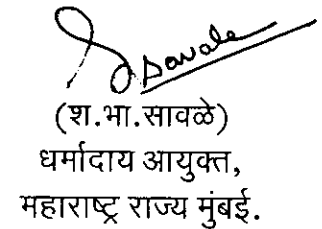 Dsavale
(श.भा.सावळे)
धर्मादाय आयुक्त,
महाराष्ट्र राज्य मुंबई.